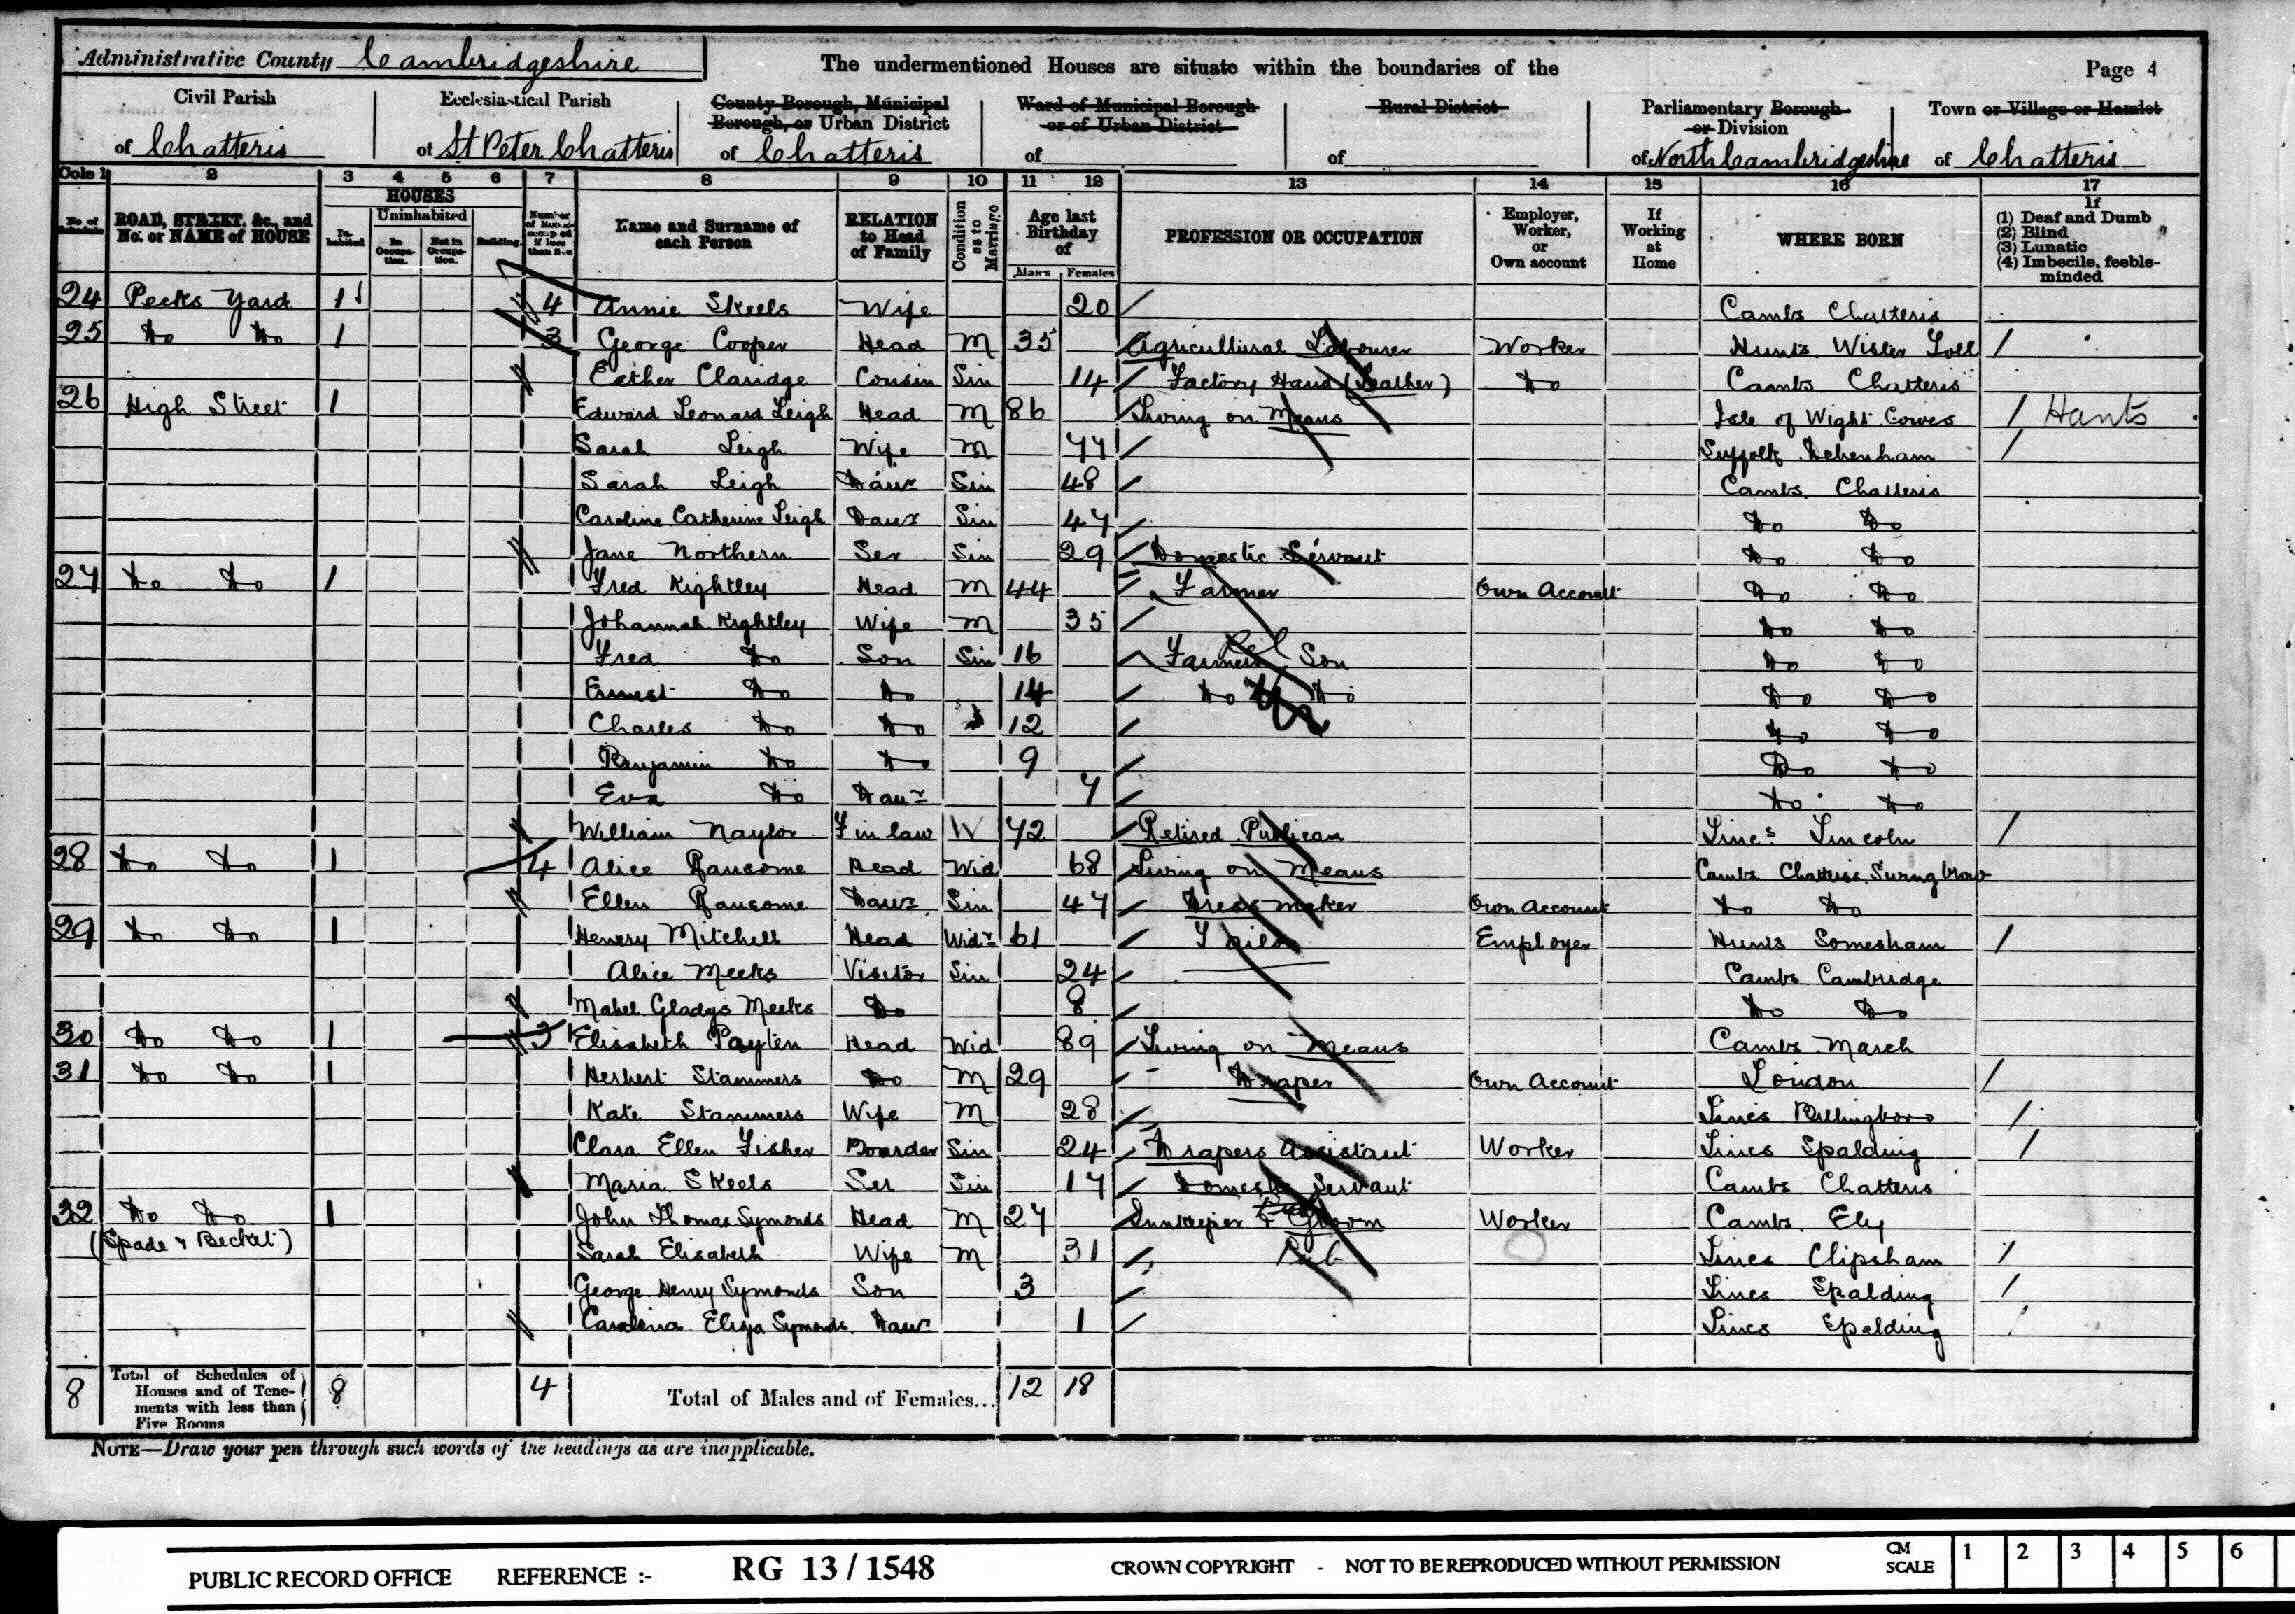 Administrative County Cambridgeshire The undermentioned Houses are situate within the boundaries of the Page 4
Civil Parish Ecclesiastical Parish County Borough, Municipal Borough, or Urban District Ward of Municipal Borough or of Urban District Rural District Parliamentary Borough or Division Town or Village or Hamlet
of Chatteris of St Peter Chatteris of Chatteris of of of North Cambridgeshire of Chatteris
Cols 1 2 3 4 5 6 7 8 9 10 11 12 13 14 15 16 17
No. of Schedule ROAD, STREET, &c., and No. or NAME of HOUSE HOUSES Inhabited Uninhabited In Occupation. Not in Occupation. Building. Name and Surname of each Person RELATION to Head of Family Condition as to Marriage Age last Birthday of Males Females PROFESSION OR OCCUPATION Employer, Worker, or Own account If Working at Home WHERE BORN If (1) Deaf and Dumb (2) Blind (3) Lunatic (4) Imbecile, feeble-minded
24 Pecks Yard 1 4 Annie Skeels Wife 20 Cambs Chatteris
25 Do Do 1 3 George Cooper Head M 35 Agricultural Labourer Worker Hunts
Esther Claridge Cousin Sin 14 Factory Hand (Leather) Do Cambs Chatteris
26 High Street 1 Edward Leonard Leigh Head M 86 Living on Means Isle of Wight Cowes Hants
Sarah Leigh Wife M 77 Suffolk Debenham
Sarah Leigh Daur Sin 48 Cambs Chatteris
Caroline Catherine Leigh Daur Sin 47 Do Do
Jane Northern Ser Sin 29 Domestic Servant Do Do
27 Do Do 1 Fred Kightley Head M 44 Farmer Own Account Do Do
Johannah Kightley Wife M 35 Do Do
Fred Do Son Sin 16 Farmers Son Do Do
Ernest Do Do 14 Do Do Do Do
Charles Do Do 12 Do Do
Benjamin Do Do 9 Do Do
Eva Do Daur 7 Do Do
William Naylor F in law W 72 Retired Publican Lincs Lincoln
28 Do Do 1 4 Alice Ransome Head Wid 68 Living on Means Cambs Chatteris
Ellen Ransome Daur Sin 47 Dress maker Own Account Do Do
29 Do Do 1 Henery Mitchell Head Widr 61 Tailor Employer Hunts Somersham
Alice Meeks Visitor Sin 24 Cambs Cambridge
Mabel Gladys Meeks Do 8 Do Do
30 Do Do 1 3 Elisabeth Payten Head Wid 89 Living on Means Cambs March
31 Do Do 1 Herbert Stammers Do M 29 Draper Own Account London
Kate Stammers Wife M 28 Lincs Billingboro
Clara Ellen Fisher Boarder Sin 24 Drapers Assistant Worker Lincs Spalding
Maria Skeels Ser Sin 17 Domestic Servant Cambs Chatteris
32 Do Do 1 John Thomas Symonds Head M 27 Innkeeper & Groom Worker Cambs Ely
(Spade & Becket) Sarah Elisabeth Wife M 31 Lincs Clipsham
George Henry Symonds Son 3 Lincs Spalding
Carolina Eliza Symonds Daur 1 Lincs Spalding
8 Total of Schedules of Houses and of Tenements with less than Five Rooms 8 4 Total of Males and of Females... 12 18
NOTE—Draw your pen through such words of the headings as are inapplicable.
PUBLIC RECORD OFFICE REFERENCE :- RG 13 / 1548 CROWN COPYRIGHT - NOT TO BE REPRODUCED WITHOUT PERMISSION CM SCALE 1 2 3 4 5 6